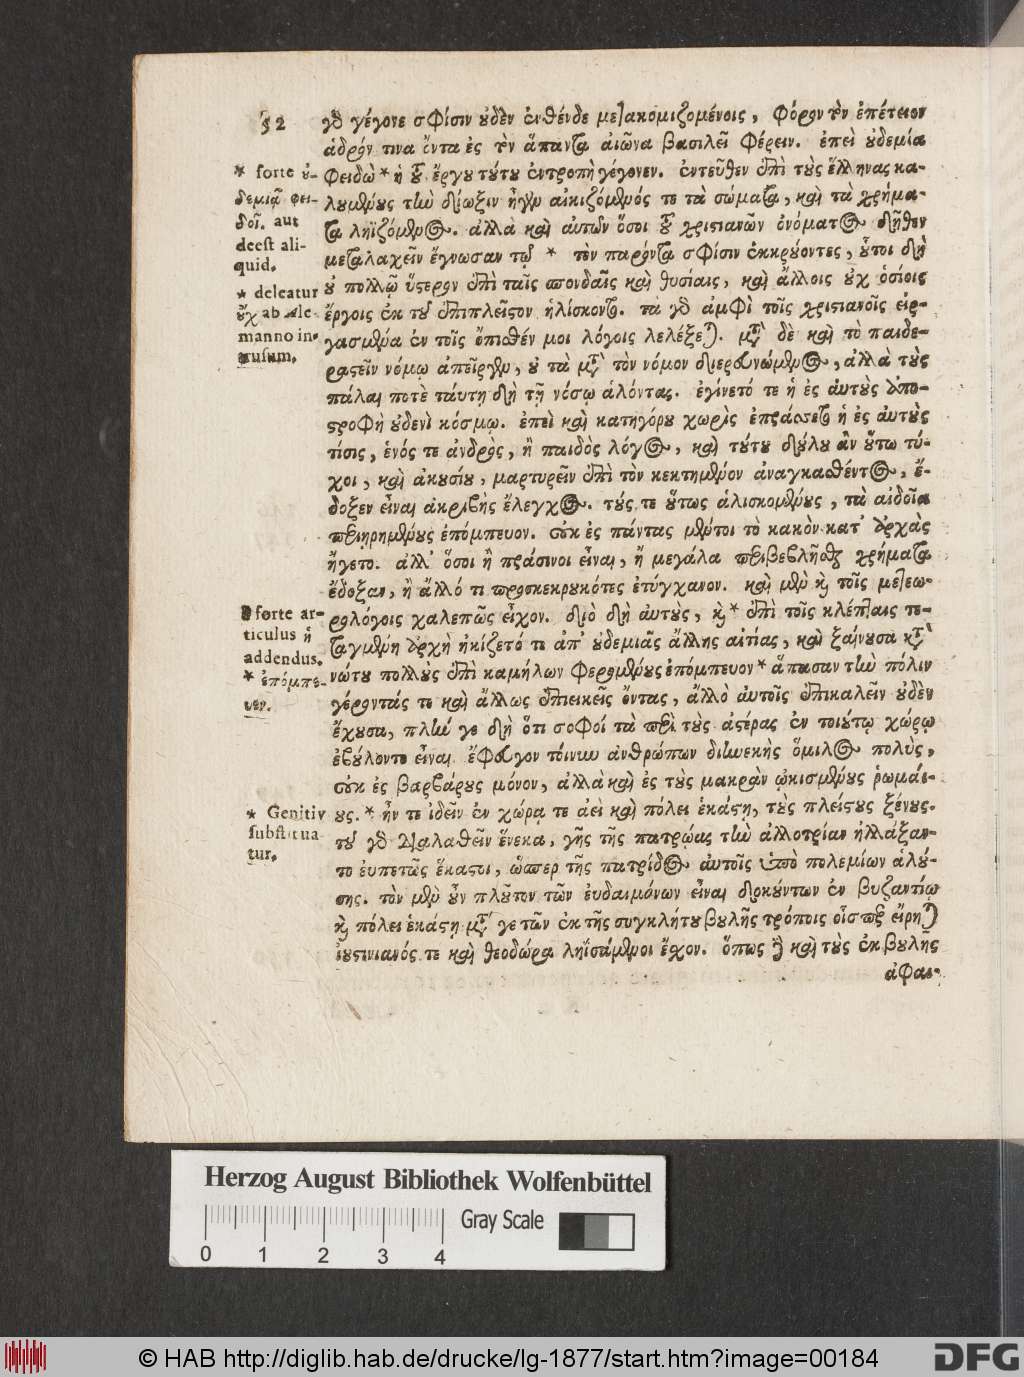 52
γὰρ γέγονε σφίσιν οὐδὲν ἐνθένδε μετακομιζομένοις, φόρον τὸν ἐπέτειον
ἁδρόν τινα ὄντα ἐς τὸν ἅπαντα αἰῶνα βασιλεῖ φέρειν. ἐπεὶ οὐδεμία
φειδὼ * ἡ τοῦ ἔργου τούτου ἐντροπὴ γέγονεν. ἐντεῦθεν ἐπὶ τοὺς ἕλληνας κα-
λουμένους τὴν δίωξιν ἦγεν αἰκιζόμενός τε τὰ σώματα, καὶ τὰ χρήμα-
τα ληϊζόμενος. ἀλλὰ καὶ αὐτῶν ὅσοι τοῦ χριστιανῶν ὀνόματος δῆθεν
μεταλαχεῖν ἔγνωσαν τῷ * τὸν παρόντα σφίσιν ἐκκρούοντες, οὗτοι δὴ
οὐ πολλῷ ὕστερον ἐπὶ ταῖς σπονδαῖς καὶ θυσίαις, καὶ ἄλλοις οὐχ ὁσίοις
ἔργοις ἐκ τοῦ ἐπιπλεῖστον ἡλίσκοντο. τὰ γὰρ ἀμφὶ τοῖς χριστιανοῖς εἰρ-
γασμένα ἐν τοῖς ὄπισθέν μοι λόγοις λελέξεται. μετὰ δὲ καὶ τὸ παιδε-
ραστεῖν νόμῳ ἀπεῖργεν, οὐ τὰ μετὰ τὸν νόμον διερευνώμενος, ἀλλὰ τοὺς
πάλαι ποτὲ ταύτῃ δὴ τῇ νόσῳ ἁλόντας. ἐγίνετό τε ἡ ἐς αὐτοὺς ἀπο-
στροφὴ οὐδενὶ κόσμῳ. ἐπεὶ καὶ κατηγόρου χωρὶς ἐπράσσετο ἡ ἐς αὐτοὺς
τίσις, ἑνός τε ἀνδρὸς, ἢ παιδὸς λόγος, καὶ τούτου δούλου ἂν οὕτω τύ-
χοι, καὶ ἀκουσίου, μαρτυρεῖν ἐπὶ τὸν κεκτημένον ἀναγκασθέντος, ἔ-
δοξεν εἶναι ἀκριβὴς ἔλεγχος. τούς τε οὕτως ἁλισκομένους, τὰ αἰδοῖα
περιῃρημένους ἐπόμπευον. οὐκ ἐς πάντας μέντοι τὸ κακὸν κατ' ἀρχὰς
ἤγετο. ἀλλ' ὅσοι ἢ πράσινοι εἶναι, ἢ μεγάλα περιβεβλῆσθαι χρήματα
ἔδοξαν, ἢ ἄλλό τι προσκεκρουκότες ἐτύγχανον. καὶ μὲν καὶ τοῖς μετεω-
ρολόγοις χαλεπῶς εἶχον. διὸ δὴ αὐτοὺς, καὶ * ἐπὶ τοῖς κλέπταις τε-
ταγμένη ἀρχὴ ἠκίζετό τε ἀπ' οὐδεμιᾶς ἄλλης αἰτίας, καὶ ξαίνουσα κατὰ
νώτου πολλοὺς ἐπὶ καμήλων φερομένους ἐπόμπευον * ἅπασαν τὴν πόλιν
γέροντάς τε καὶ ἄλλως ἐπιεικεῖς ὄντας, ἄλλὸ αὐτοῖς ἐπικαλεῖν οὐδὲν
ἔχουσα, πλήν γε δὴ ὅτι σοφοί τὰ περὶ τοὺς ἀστέρας ἐν τοιούτῳ χώρῳ
ἐβούλοντο εἶναι ἔφευγον τοίνυν ἀνθρώπων διηνεκὴς ὅμιλος πολὺς,
οὐκ ἐς βαρβάρους μόνον, ἀλλὰ καὶ ἐς τοὺς μακρὰν ᾠκισμένους ῥωμαί-
ους. * ἦν τε ἰδεῖν ἐν χώρᾳ τε ἀεὶ καὶ πόλει ἑκάστῃ, τοὺς πλείστους ξένους.
τοῦ γὰρ διαλαθεῖν ἕνεκα, γῆς τῆς πατρῴας τὴν ἀλλοτρίαν ἠλλάξαν-
το εὐπετῶς ἕκαστοι, ὥσπερ τῆς πατρίδος αὐτοῖς ὑπὸ πολεμίων ἁλού-
σης. τὸν μὲν οὖν πλοῦτον τῶν εὐδαιμόνων εἶναι δοκούντων ἐν βυζαντίῳ
καὶ πόλει ἑκάστῃ μετά γε τῶν ἐκ τῆς συγκλήτου βουλῆς τρόποις οἷσπερ εἴρηται
ἰουστινιανός τε καὶ θεοδώρα ληϊσάμενοι ἔχον. ὅπως δὲ καὶ τοὺς ἐκ βουλῆς
ἀφαι-
* forte οὐ-
δεμιᾷ φει-
δοῖ. aut
deest ali-
quid.
* deleatur
οὐχ ab Ale
manno in-
trusum.
* forte ar-
ticulus ἡ
addendus.
* ἐπόμπε-
υεν.
* Genitiv
substitua
tur.
Herzog August Bibliothek Wolfenbüttel
Gray Scale
0 1 2 3 4
© HAB http://diglib.hab.de/drucke/lg-1877/start.htm?image=00184
DFG